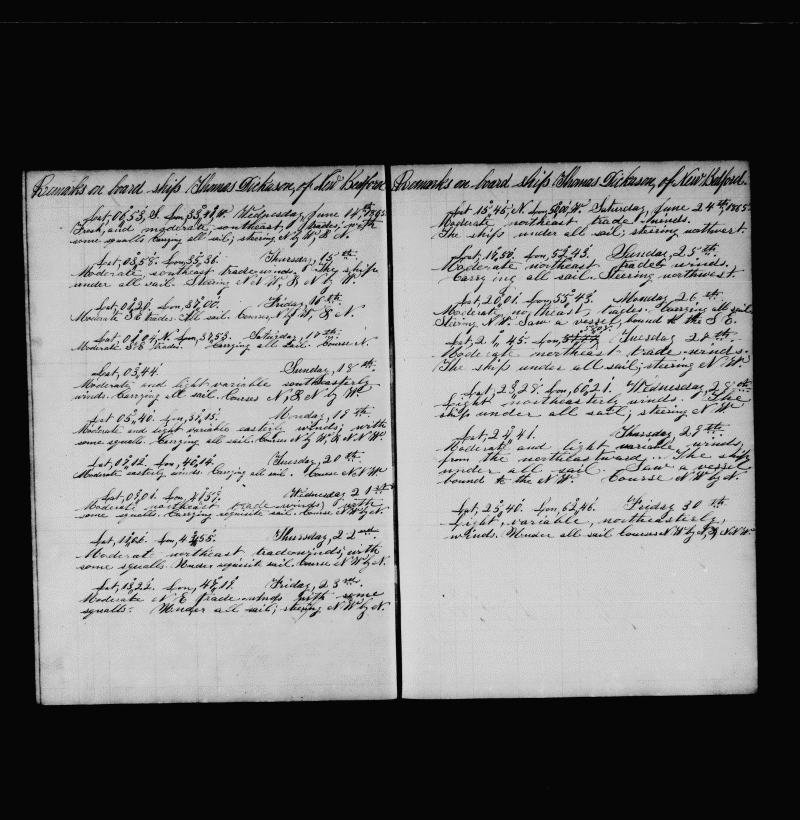 Remarks on board ship Thomas Dickason, of New Bedford
Lat, 06°,53, S. Lon, 35°, W. Wednesday, June 14th, 1865
Fresh, and moderate, southeast, trades, with
some squalls Carrying all sail; steering N by W, & N.
Lat, 03°,58. Lon, 35°,36. Thursday, 15th
Moderate southeast trade-wind. The ship
under all sail. Steering N by W, & N by W.
Lat, 01°,20. Lon, 00. Friday, 16th
Moderate S E trades. All sail. Courses, N by W, & N.
Lat, N. Lon, 53. Saturday, 17th
Moderate S.E. Trades. Carrying all sail. Course N.
Lat, 03°,44. Sunday, 18th
Moderate and light variable southeasterly
winds. Carrying all sail. Courses N, & N by W.
Lat 05°,40. Lon, Monday, 19th
Moderate and light variable easterly winds; with
some squalls. Carrying all sail. Courses N by W, & N N W
Lat, 07°,12. Lon, 40°,14. Tuesday, 20th
Moderate easterly winds. Carrying all sail. Course N N W
Lat, 09°,01. Lon, Wednesday 21st
Moderate northeast trade winds; with
some squalls. Carrying requisite sail. Course N W by N.
Lat, Lon, 55. Thursday, 22nd
Moderate northeast trade-winds; with
some squalls. Under requisite sail. Course N W by N.
Lat, 13°,22. Lon, Friday, 23rd.
Moderate N E trade-winds with some
squalls. Under all sail; steering N W by N.
Remarks on board ship Thomas Dickason, of New Bedford.
Lat 15°,45, N. Lon, W. Saturday, June 24th, 1865
Moderate northeast trade-winds.
The ship under all sail; steering northwest.
Lat, 50. Lon, 43. Sunday, 25th
Moderate northeast trade winds.
Carrying all sail. Steering northwest
Lat, 20°,01. Lon, 55°,43. Monday 26th
Moderate, northeast, trades. Carrying all sail
Steering N W. Saw a vessel, bound to the S E.
Lat, 21°, 45. Lon, Tuesday 27th
Moderate northeast trade-winds.
The ship under all sail; steering N W.
Lat, 23°,28. Lon, 60°,21. Wednesday, 28th
Light northeasterly winds. The
ship under all sail; steering N W
Lat, 24°,41. Thursday, 29th
Moderate and light variable winds,
from the northeastward. The ship
under all sail. Saw a vessel
bound to the N W. Course N W by N.
Lat, 25°,40. Lon, 46. Friday 30th
Light, variable, northeasterly,
winds. Under all sail Courses N W by N, & N N W